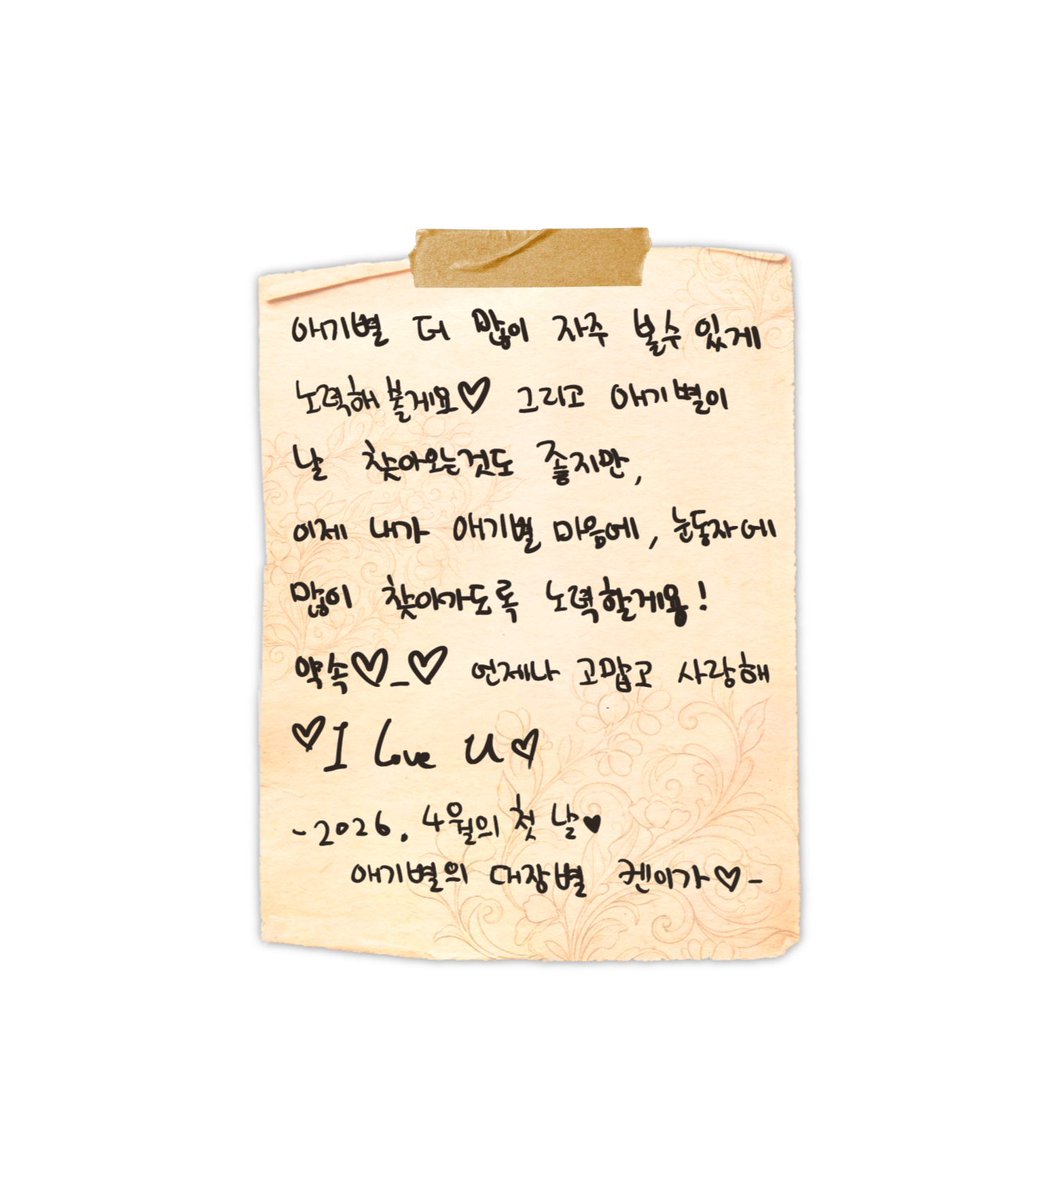 애기별 더 많이 자주 볼수있게
노력해볼게요♡ 그리고 애기별이
날 찾아오는것도 좋지만,
이제 내가 애기별 마음에, 눈동자에
많이 찾아가도록 노력할게용!
약속♡_♡ 언제나 고맙고 사랑해
♡I Love U♡
-2026. 4월의 첫 날♥
애기별의 대장별 켄이가♡-